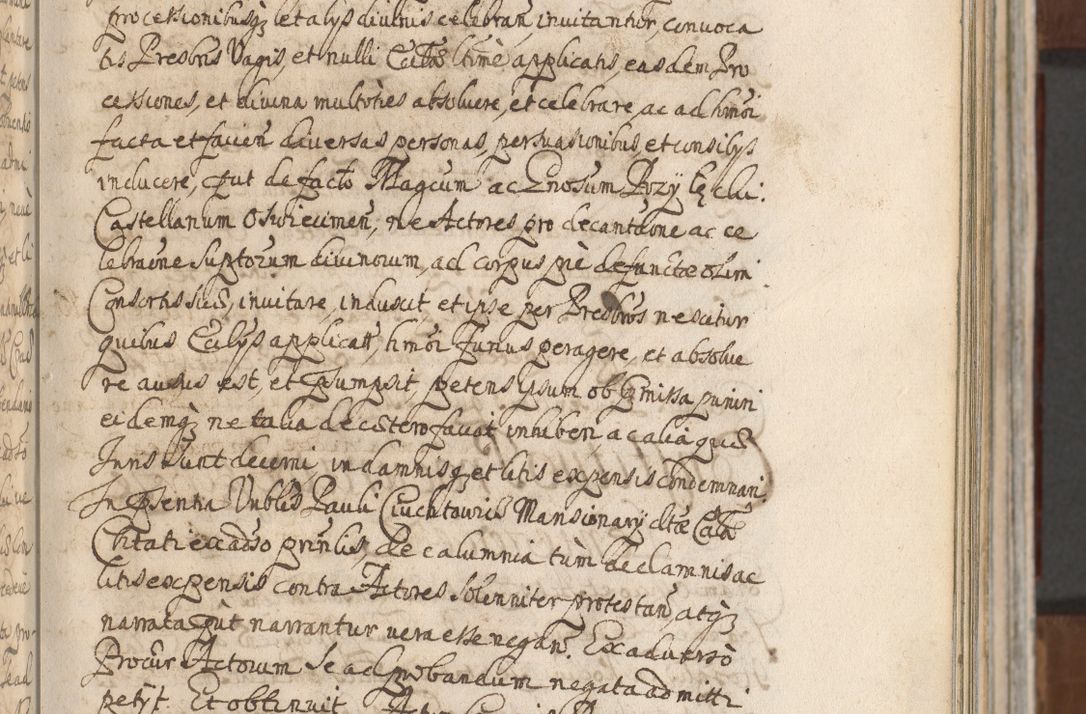 processionibusq; et alys divinis celebran, invitantur, convoca
tis Presbris Vagis, et nulli Ecclae ltimè applicatis, easdem Pro
cessiones, et divina multoties absolvere, et celebrare, ac ad hmoi
facta et facien diversas personas, persuasionibus, et consilys
inducere, put de facto Magcum ac Gnosum
Castellanum Oswiecimen, ne Actores pro decantaone ac ce
lebraone suptorum divinorum, ad corpus piè defunctae olim
Consortis suae, invitare, induxit, et ipse per Presbros nescitur
quibus Ecclys applicatt, hmoi Funus peragere, et absolve
re ausus est, et psumpsit, petens ipsum ob pmissa puniri
eidemq; ne talia de caetero faciat inhiberi ac alia quae
Juris sunt decerni, in damnisq; et litis expensis condemnari
In psentia Vnblis Pauli Mansionarij dtae Ecclae
Citati ex adso prinlis, de calumnia tùm de damnis ac
litis expensis contra Actores solenniter protestan, atq;
narrata put narrantur vera esse negan. Ex adverso
Procur Actorum se ad probandum negata admitti
petÿt. Et obtinuit